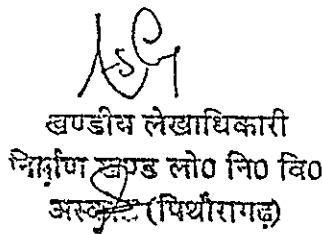 खण्डीय लेखाधिकारी
निर्माण खण्ड लो0 नि0 वि0
अस्कोट (पिथौरागढ़)